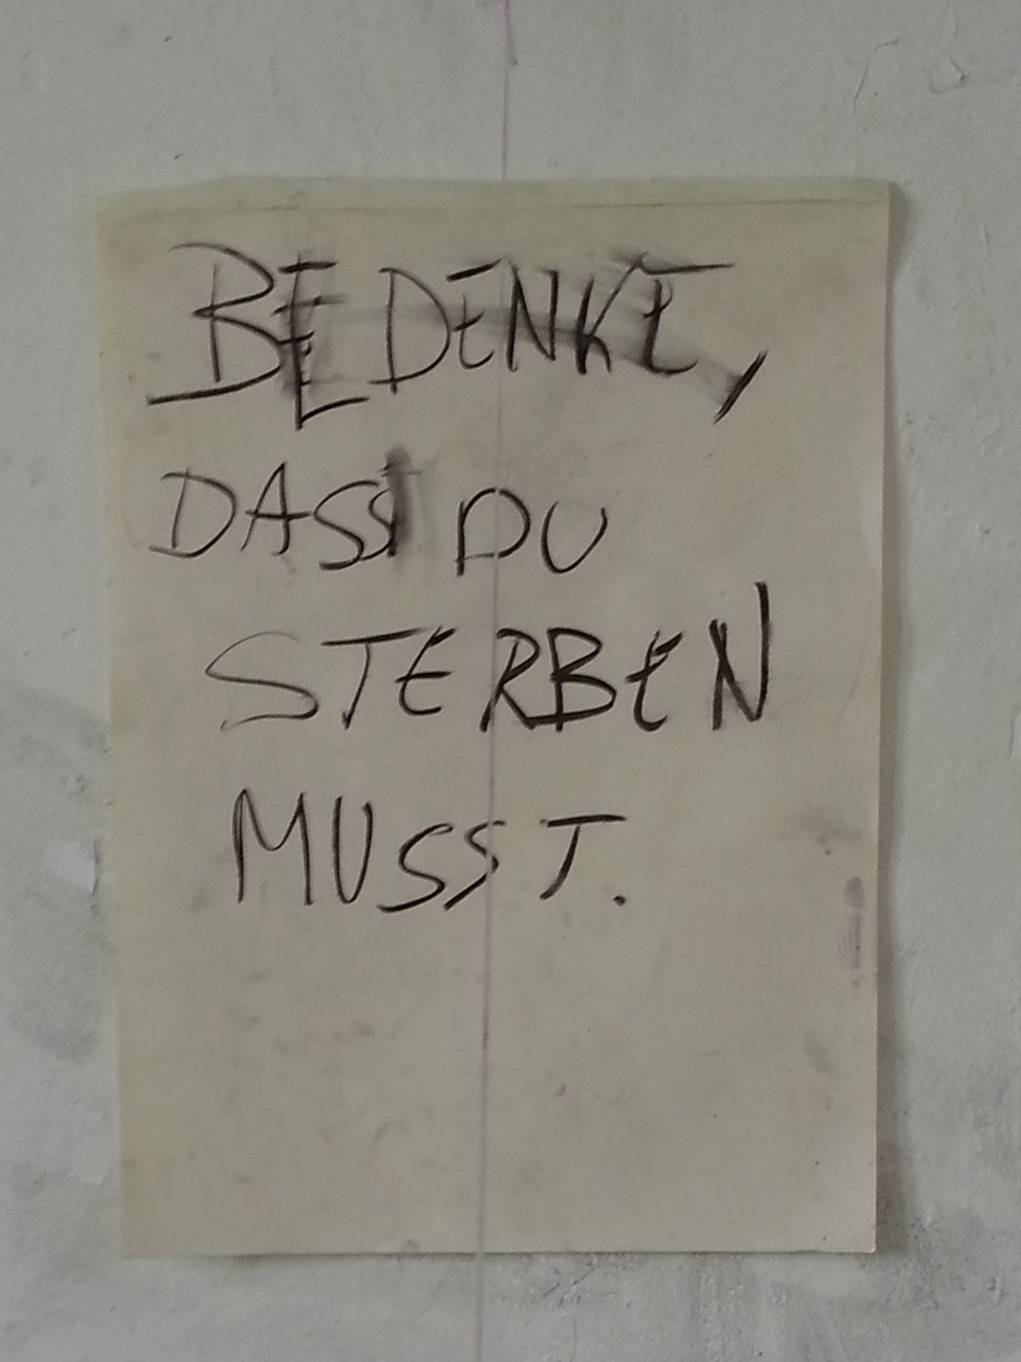 BEDENKE,
DASS DU
STERBEN
MUSST.